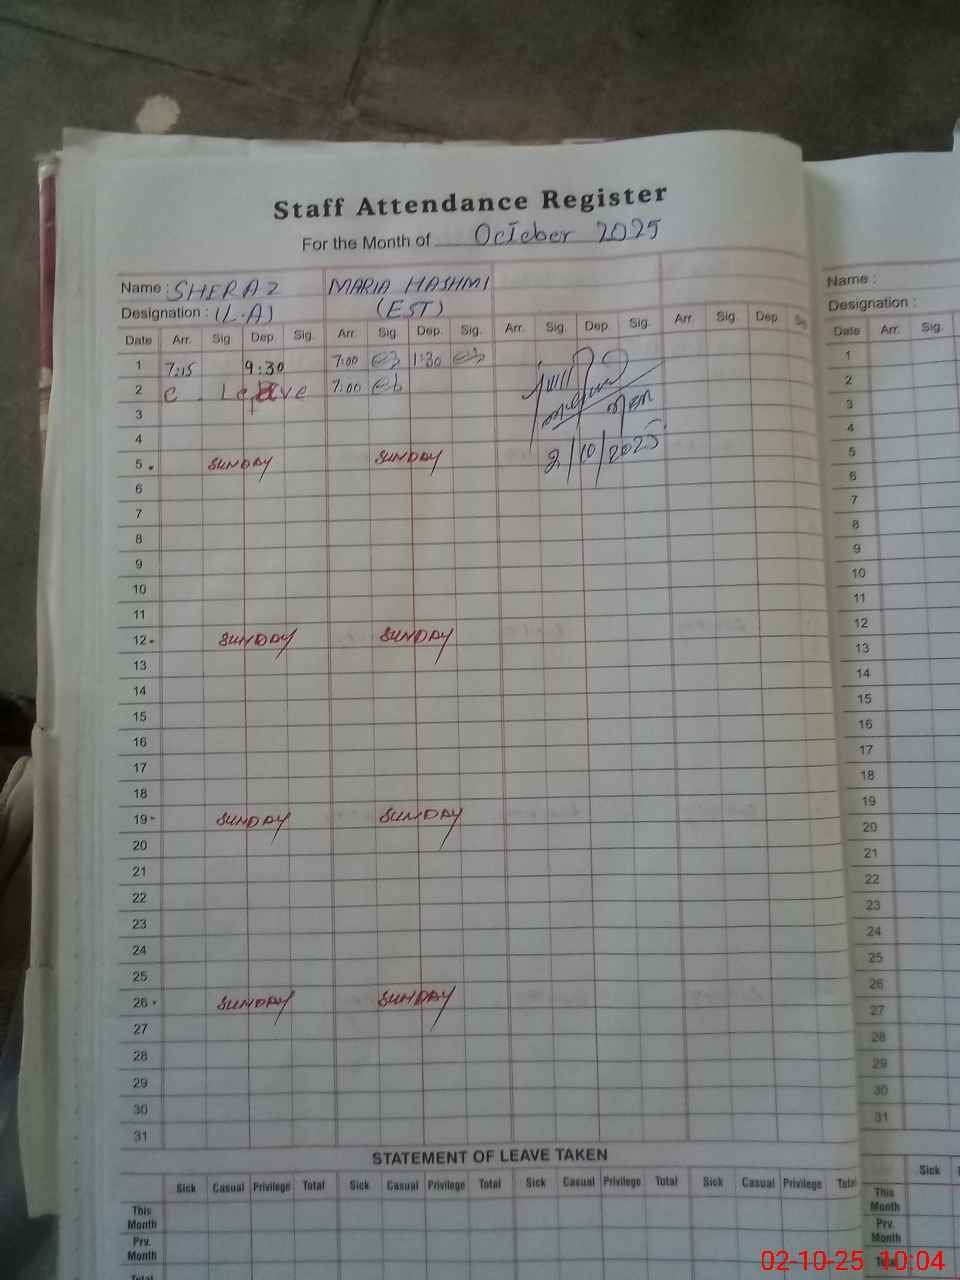 Staff Attendance Register
For the Month of October 2025
Name : SHERAZ MARIA HASHMI
Designation : (L.A) (EST)
Date Arr. Sig Dep. Sig. Arr. Sig. Dep. Sig. Arr. Sig. Dep. Sig. Arr. Sig. Dep. Sig.
1 7:15 9:30 7:00 1:30
2 C. Leave 7:00
3
4
5 SUNDAY SUNDAY 2/10/2025
6
7
8
9
10
11
12 SUNDAY SUNDAY
13
14
15
16
17
18
19 SUNDAY SUNDAY
20
21
22
23
24
25
26 SUNDAY SUNDAY
27
28
29
30
31
STATEMENT OF LEAVE TAKEN
Sick Casual Privilege Total Sick Casual Privilege Total Sick Casual Privilege Total Sick Casual Privilege Total
This Month
Prv. Month
Total
Name :
Designation :
Date Arr. Sig.
1
2
3
4
5
6
7
8
9
10
11
12
13
14
15
16
17
18
19
20
21
22
23
24
25
26
27
28
29
30
31
Sick
This Month
Prv. Month
Total
02-10-25 10:04